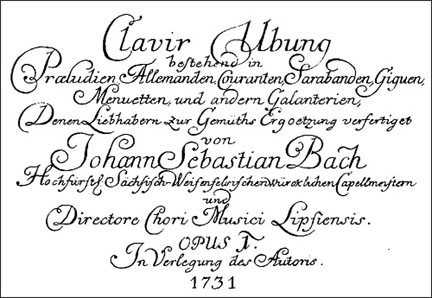 Clavir Ubung
bestehend in
Præludien, Allemanden, Couranten, Sarabanden, Giguen,
Menuetten, und andern Galanterien,
Denen Liebhabern zur Gemüths Ergoetzung verfertiget
von
Johann Sebastian Bach
Hochfürstl. Sächsisch-Weisenfelsischen würcklichen Capellmeistern
und
Directore Chori Musici Lipsiensis.
OPUS 1.
In Verlegung des Autoris.
1731